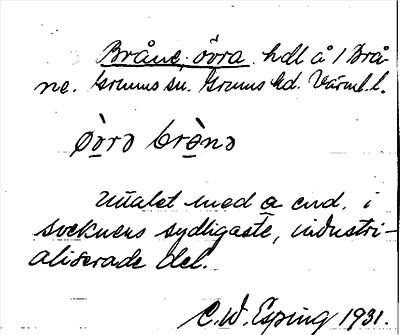 Bråne, övra. hdl å / Brå-
ne. Grums sn. Grums hd. Värml. l.
òvrə brònə
Uttalet med a end. i
socknens sydligaste, industri-
aliserade del.
C.W. Esping 1931.